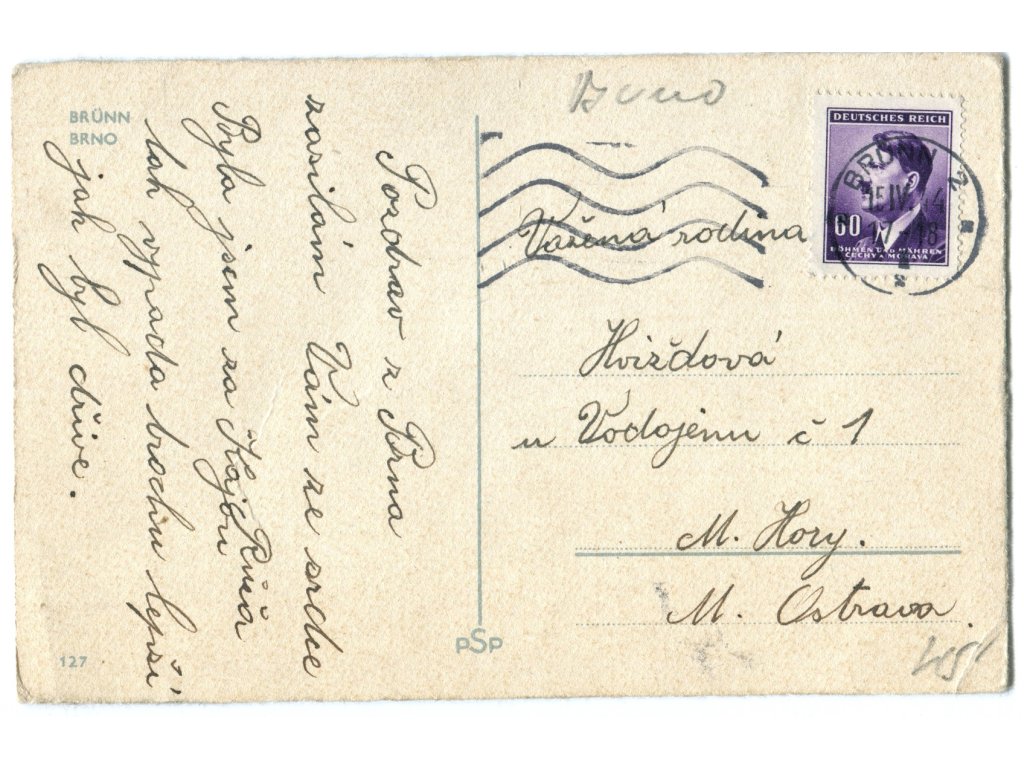 BRÜNN
BRNO
Pozdrav z Brna
zasílám Vám ze srdce
Růža
Byla jsem za Kájou
tak vypada trochu lepší
jak byl dříve.
127
PSP
Brno
DEUTSCHES REICH
60
BÖHMEN UND MÄHREN
ČECHY A MORAVA
BRÜNN 2
15.IV.44
17-18
Važená rodina
Hvížďová
u Vodojemu č 1
M. Hory.
M. Ostrava